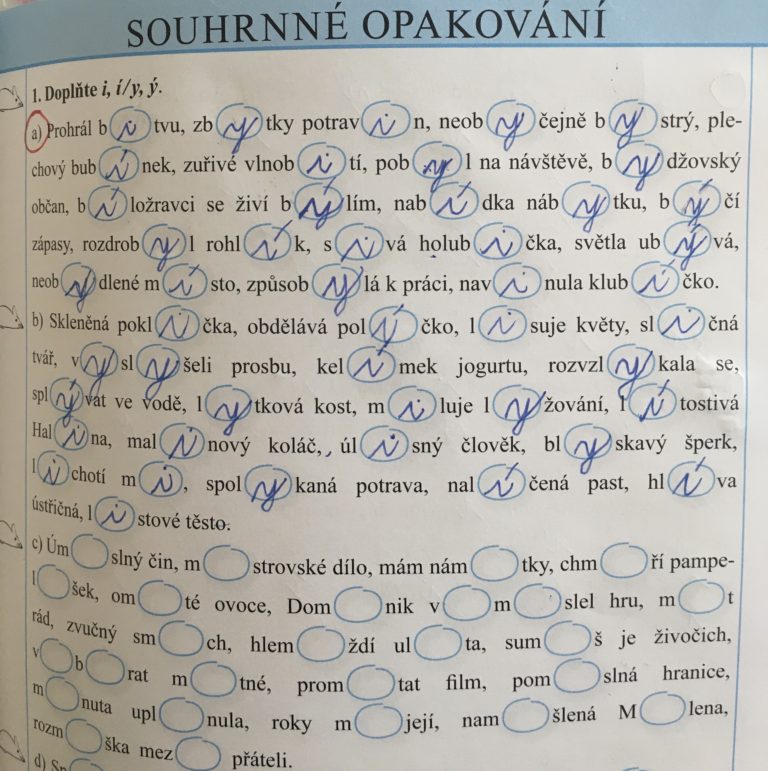 SOUHRNNÉ OPAKOVÁNÍ
1. Doplňte i, í/y, ý.
a) Prohrál bitvu, zbytky potravin, neobyčejně bystrý, ple-
chový bubínek, zuřivé vlnobití, pobyl na návštěvě, bydžovský
občan, býložravci se živí býlím, nabídka nábytku, býčí
zápasy, rozdrobyl rohlík, sivá holubička, světla ubývá,
neobydlené místo, způsobylá k práci, navinula klubíčko.
b) Skleněná poklička, obdělává polýčko, lisuje květy, sličná
tvář, vyslyšeli prosbu, kelímek jogurtu, rozvzlykala se,
splývat ve vodě, lytková kost, miluje lyžování, lítostivá
Halina, malinový koláč, úlisný člověk, blyskavý šperk,
lichotí mi, spolykaná potrava, nalíčená past, hlíva
ústřičná, listové těsto.
c) Úm slný čin, m strovské dílo, mám nám tky, chm ří pampe-
l šek, om té ovoce, Dom nik v m slel hru, m t
rád, zvučný sm ch, hlem ždí ul ta, sum š je živočich,
v b rat m tné, prom tat film, pom slná hranice,
m nuta upl nula, roky m její, nam šlená M lena,
rozm ška mez přáteli.
d) Sp